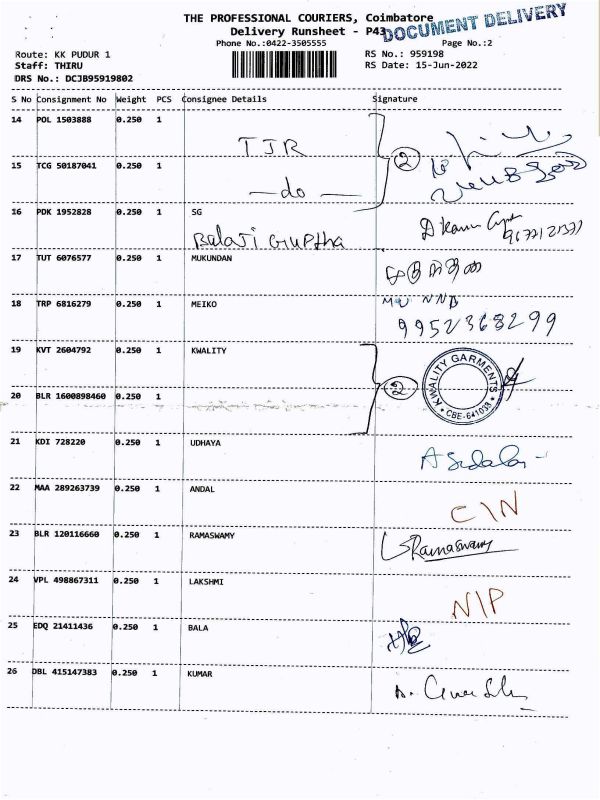 THE PROFESSIONAL COURIERS, Coimbatore
DOCUMENT DELIVERY
Delivery Runsheet - P43
Phone No.:0422-3505555
Page No.:2
Route: KK PUDUR 1
RS No.: 959198
Staff: THIRU
RS Date: 15-Jun-2022
DRS No.: DCJB95919802
S No Consignment No Weight PCS Consignee Details Signature
14 POL 1503888 0.250 1
TJR
2
15 TCG 50187041 0.250 1
—do—
16 PDK 1952828 0.250 1 SG
Balaji Gruptha
17 TUT 6076577 0.250 1 MUKUNDAN
18 TRP 6816279 0.250 1 MEIKO
99523 68299
19 KVT 2604792 0.250 1 KWALITY
KWALITY GARMENTS
* CBE-641038 *
2
20 BLR 1600898460 0.250 1
21 KDI 728220 0.250 1 UDHAYA
22 MAA 289263739 0.250 1 ANDAL
C\N
23 BLR 120116660 0.250 1 RAMASWAMY
Ramaswamy
24 VPL 498867311 0.250 1 LAKSHMI
N\P
25 EDQ 21411436 0.250 1 BALA
26 DBL 415147383 0.250 1 KUMAR